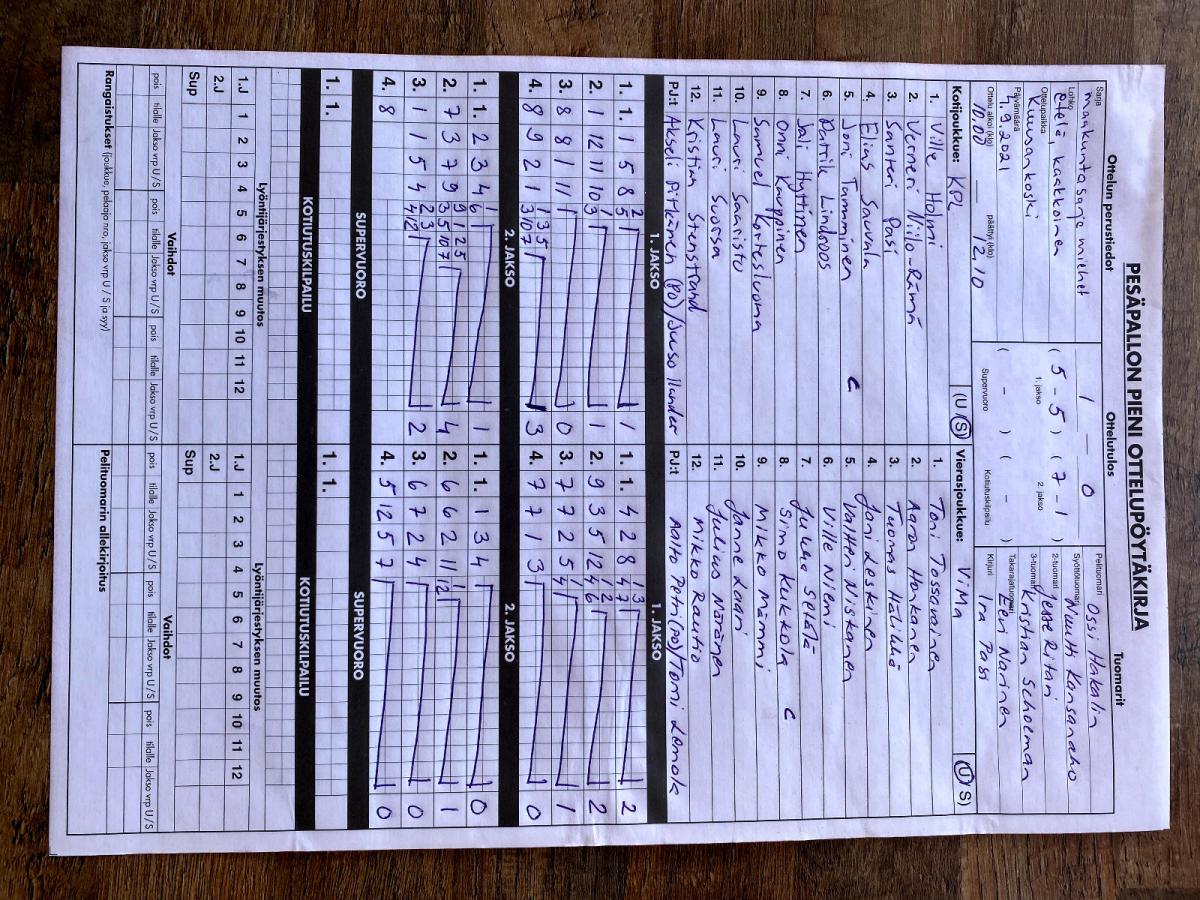 PESÄPALLON PIENI OTTELUPÖYTÄKIRJA
Ottelun perustiedot
Ottelutulos
Tuomarit
Sarja
maakuntasarja miehet
Lohko
etelä, kaakkoinen
Ottelupaikka
Kuusankoski
Päivämäärä
7.9.2021
Ottelu alkoi (klo)
10.00
päättyi (klo)
12.10
1 – 0
( 5 - 5 ) ( 7 - 1 )
1. jakso
2. jakso
( - ) ( - )
Supervuoro
Kotiutuskilpailu
Pelituomari
Ossi Hakalin
Syöttötuomari
Nuutti Kansanaho
2-tuomari
Jesse Ritari
3-tuomari
Kristian Schoeman
Takarajatuomari
Eeri Narinen
Kirjuri
Ira Pasi
Kotijoukkue: KPL (U / S)
1. Ville Holmi
2. Verneri Niilo-Rämä
3. Santeri Pasi
4. Elias Sauvala
5. Joni Tamminen C
6. Patrik Lindroos
7. Jali Hyttinen
8. Onni Kauppinen
9. Samuel Kortesluoma
10. Lauri Saaristo
11. Lauri Suorsa
12. Kristian Stenstrand
PJ:t Akseli Pitkänen (PO) / Juuso Ilander
Vierasjoukkue: ViMa (U / S)
1. Toni Tossavainen
2. Aaron Hankanen
3. Tuomas Hälikkä
4. Joni Leskinen
5. Valtteri Niskanen
6. Ville Niemi
7. Jukka Setälä
8. Simo Kurkkola C
9. Mikko Mämmi
10. Janne Laari
11. Julius Näränen
12. Mikko Rautio
PJ:t Aalto Petri (PO) / Tomi Lamok
1. JAKSO
1. JAKSO
1. 1. 1 5 8 5 2 1
2. 1 12 11 10 3 1 1
3. 8 8 1 11 0
4. 8 9 2 1 3 10 7 1 3 5 3
1. 1. 4 2 8 4 7 1 3 2
2. 9 3 5 12 4 6 1 2 2
3. 7 7 2 5 4 1 1
4. 7 7 1 3 0
2. JAKSO
2. JAKSO
1. 1. 2 3 4 6 1 1
2. 7 3 7 9 3 5 10 7 9 1 2 5 4
3. 1 1 5 4 4 12 2 3 2
4. 8
1. 1. 1 3 4 0
2. 6 6 2 11 12 1 1
3. 6 7 2 4 0
4. 5 12 5 7 0
SUPERVUORO
SUPERVUORO
1. 1.
1. 1.
KOTIUTUSKILPAILU
KOTIUTUSKILPAILU
Lyöntijärjestyksen muutos
Lyöntijärjestyksen muutos
1.J 1 2 3 4 5 6 7 8 9 10 11 12
2.J
Sup
1.J 1 2 3 4 5 6 7 8 9 10 11 12
2.J
Sup
Vaihdot
Vaihdot
pois tilalle Jakso vrp U/S pois tilalle Jakso vrp U/S pois tilalle Jakso vrp U/S
pois tilalle Jakso vrp U/S pois tilalle Jakso vrp U/S pois tilalle Jakso vrp U/S
Rangaistukset (joukkue, pelaaja nro, jakso vrp U / S ja syy)
Pelituomarin allekirjoitus